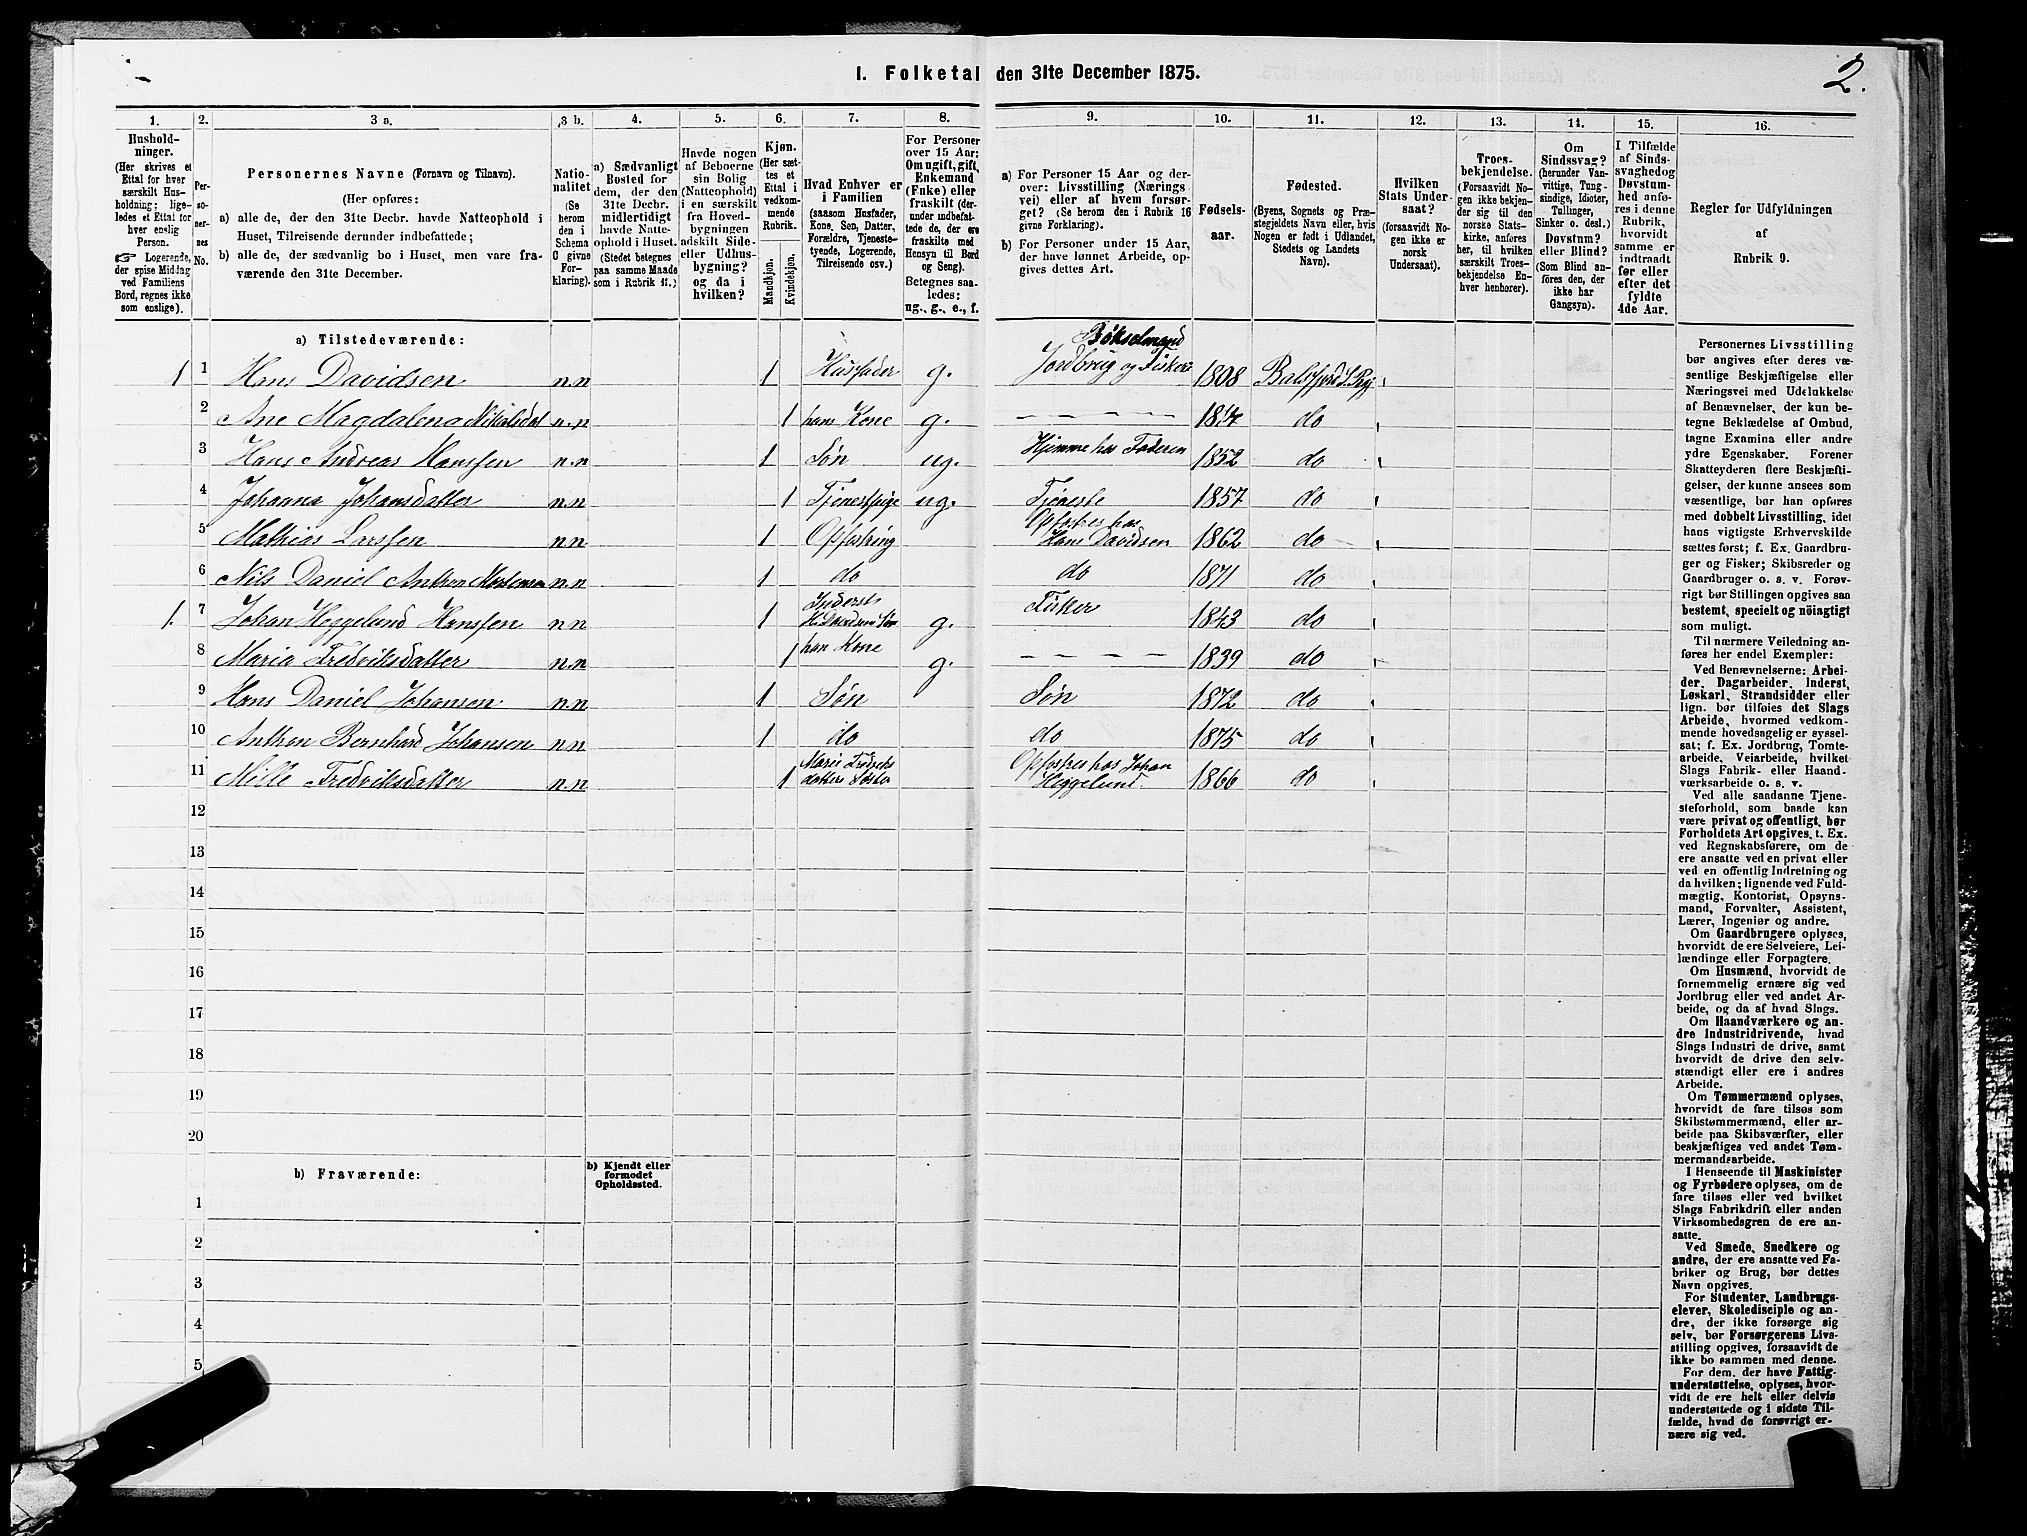 I. Folketal den 31te December 1875.
2.
1.
Hushold-
ninger.
(Her skrives et
Ettal for hver
særskilt Hus-
holdning; lige-
ledes et Ettal for
hver enslig
Person.
☞ Logerende,
der spise Middag
ved Familiens
Bord, regnes ikke
som enslige).
2.
Per-
so-
ner-
nes
No.
3 a.
Personernes Navne (Fornavn og Tilnavn).
(Her opføres:
a) alle de, der den 31te Decbr. havde Natteophold i
Huset, Tilreisende derunder indbefattede;
b) alle de, der sædvanlig bo i Huset, men vare fra-
værende den 31te December.
3 b.
Natio-
nalitet
(Se
herom
den i
Schema
O givne
For-
klaring).
4.
a) Sædvanligt
Bosted for
dem, der den
31te Decbr.
midlertidigt
havde Natte-
ophold i Huset.
(Stedet betegnes
paa samme Maade
som i Rubrik 11.)
5.
Havde nogen
af Beboerne
sin Bolig
(Natteophold)
i en særskilt
fra Hoved-
bygningen
adskilt Side-
eller Udhus-
bygning?
og da i
hvilken?
6.
Kjøn.
(Her sæt-
tes et
Ettal i
vedkom-
mende
Rubrik.
Mandkjøn.
Kvindekjøn.
7.
Hvad Enhver er
i Familien
(saasom Husfader,
Kone, Søn, Datter,
Forældre, Tjeneste-
tyende, Logerende,
Tilreisende osv.)
8.
For Personer
over 15 Aar:
Om ugift, gift,
Enkemand
(Enke) eller
fraskilt (der-
under indbefat-
tede de, der ere
fraskilte med
Hensyn til Bord
og Seng).
Betegnes saa-
ledes:
ug., g., e., f.
9.
a) For Personer 15 Aar og der-
over: Livsstilling (Nærings
vei) eller af hvem forsør-
get? (Se herom den i Rubrik 16
givne Forklaring).
b) For Personer under 15 Aar,
der have lønnet Arbeide, op-
gives dettes Art.
10.
Fødsels-
aar.
11.
Fødested.
(Byens, Sognets og Præ-
stegjeldets Navn eller, hvis
Nogen er født i Udlandet,
Stedets og Landets
Navn).
12.
Hvilken
Stats Under-
saat?
(forsaavidt No-
gen ikke er
norsk
Undersaat).
13.
Troes-
bekjendelse.
(Forsaavidt No-
gen ikke bekjen-
der sig til den
norske Stats-
kirke, anføres
her, til hvilken
særskilt Troes-
bekjendelse En-
hver henhører).
14.
Om
Sindssvag?
(herunder Van-
vittige, Tung-
sindige, Idioter,
Tullinger,
Sinker o. desl.)
Døvstum?
eller Blind?
(Som Blind an-
føres den, der
ikke har
Gangsyn).
15.
I Tilfælde
af Sinds-
svaghed og
Døvstum-
hed anfø-
res i denne
Rubrik,
hvorvidt
samme er
indtraadt
før eller
efter det
fyldte
4de Aar.
16.
Regler for Udfyldningen
af
Rubrik 9.
a) Tilstedeværende:
1 1 Hans Davidsen n.n 1 Husfader g. Bökselmand Jordbrug og Fisker 1808 Balsfjord S. Pgj
2 Ane Magdalena Nikolsdat n.n 1 hans Kone g. 1814 do
3 Hans Andreas Hanssen n.n 1 Søn ug. Hjemme hos Faderen 1852 do
4 Johanna Johansdatter n.n 1 Tjenestpige ug. Tjeneste 1857 do
5 Mathias Larssen n.n 1 Opfostring Opfostres hos Hans Davidsen 1862 do
6 Nils Daniel Anthon Mortensen n.n 1 do do 1871 do
1. 7 Johan Heggelund Hanssen n.n 1 Inderst H. Davidsens Søn g. Fisker 1843 do
8 Maria Fredriksdatter n.n 1 hans Kone g. 1839 do
9 Hans Daniel Johansen n.n 1 Søn Søn 1872 do
10 Anthon Bernhard Johansen n.n 1 do do 1875 do
11 Mille Fredriksdatter n.n 1 Marie Fredriks datters Søster Opfostres hos Johan Heggelund. 1866 do
12
13
14
15
16
17
18
19
20
b) Fraværende:
b) Kjendt eller
formodet
Opholdssted.
1
2
3
4
5
Personernes Livsstilling
bør angives efter deres væ-
sentlige Beskjæftigelse eller
Næringsvei med Udelukkelse
af Benævnelser, der kun be-
tegne Beklædelse af Ombud,
tagne Examina eller andre
ydre Egenskaber. Forener
Skatteyderen flere Beskjæfti-
gelser, der kunne ansees som
væsentlige, bør han opføres
med dobbelt Livsstilling, idet
hans vigtigste Erhvervskilde
sættes først; f. Ex. Gaardbru-
ger og Fisker; Skibsreder og
Gaardbruger o. s. v. Forøv-
rigt bør Stillingen opgives saa
bestemt, specielt og nöiagtigt
som muligt.
Til nærmere Veiledning an-
føres her endel Exempler:
Ved Benævnelserne: Arbei-
der, Dagarbeider, Inderst,
Løskarl, Strandsidder eller
lign. bør tilføies det Slags
Arbeide, hvormed vedkom-
mende hovedsagelig er syssel-
sat; f. Ex. Jordbrug, Tomte-
arbeide, Veiarbeide, hvilket
Slags Fabrik- eller Haand-
værksarbeide o. s. v.
Ved alle saadanne Tjene-
steforhold, som baade kan
være privat og offentligt, bør
Forholdets Art opgives, t. Ex.
ved Regnskabsførere, om de
ere ansatte ved en privat eller
ved en offentlig Indretning og
da hvilken; lignende ved Fuld-
mægtig, Kontorist, Opsyns-
mand, Forvalter, Assistent,
Lærer, Ingeniør og andre.
Om Gaardbrugere oplyses,
hvorvidt de ere Selveiere, Lei-
lændinge eller Forpagtere.
Om Husmænd, hvorvidt de
fornemmelig ernære sig ved
Jordbrug eller ved andet Ar-
beide, og da af hvad Slags.
Om Haandværkere og an-
dre Industridrivende, hvad
Slags Industri de drive, samt
hvorvidt de drive den selv-
stændigt eller ere i andres
Arbeide.
Om Tømmermænd oplyses,
hvorvidt de fare tilsøs som
Skibstømmermænd, eller ar-
beide paa Skibsværfter, eller
beskjæftiges ved andet Tøm-
mermandsarbeide.
I Henseende til Maskinister
og Fyrbødere oplyses, om de
fare tilsøs eller ved hvilket
Slags Fabrikdrift eller anden
Virksomhedsgren de ere an-
satte.
Ved Smede, Snedkere og
andre, der ere ansatte ved Fa-
briker og Brug, bør dettes
Navn opgives.
For Studenter, Landbrugs-
elever, Skoledisciple og an-
dre, der ikke forsørge sig
selv, bør Forsørgerens Livs-
stilling opgives, forsaavidt de
ikke bo sammen med denne.
For dem, der have Fattig-
understøttelse, oplyses, hvor-
vidt de ere helt eller delvis
understøttede og i sidste Til-
fælde, hvad de forøvrigt er-
nære sig ved.